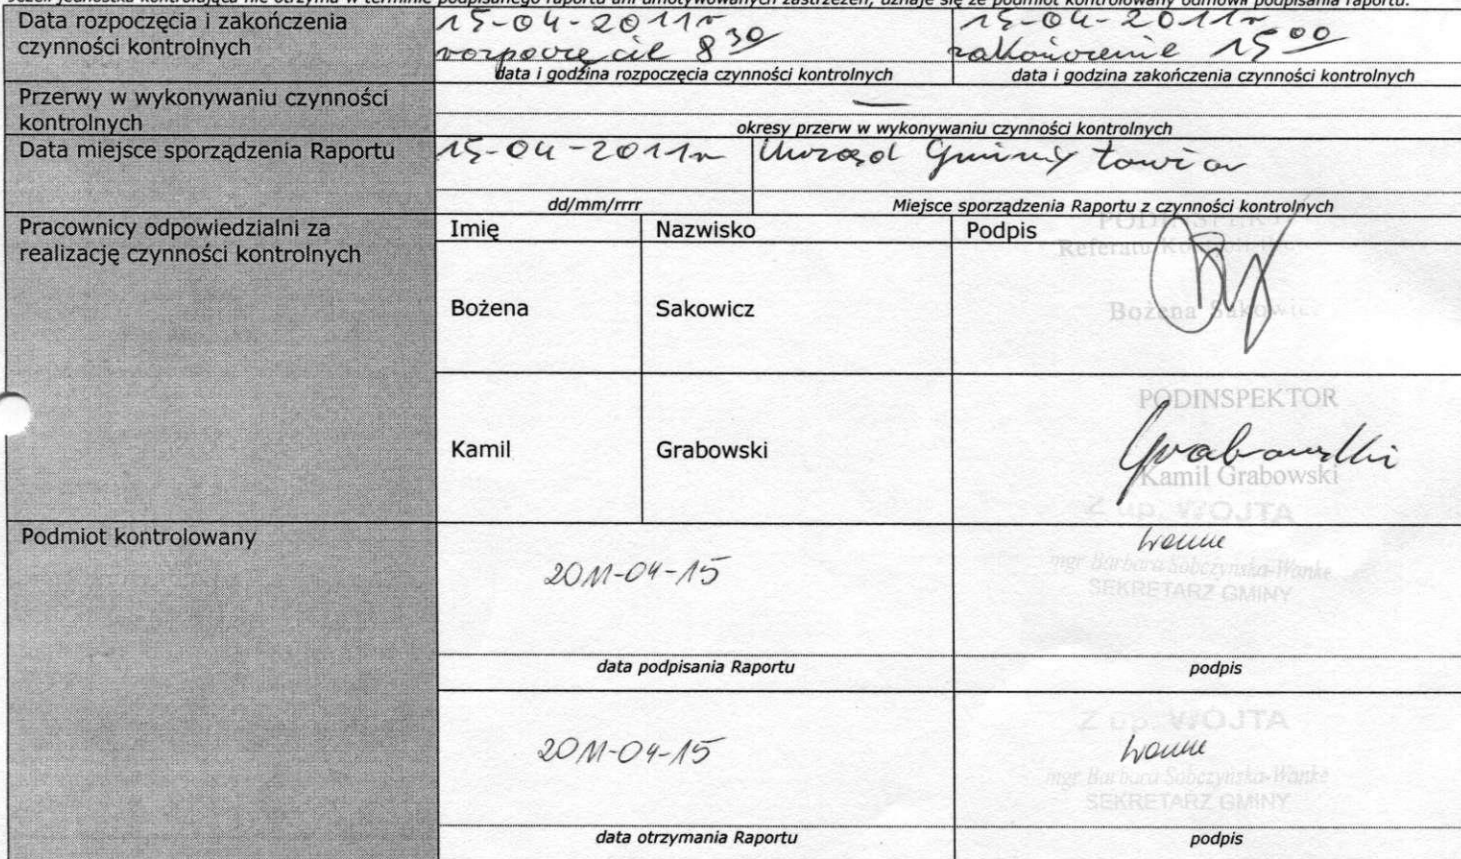 Jeżeli jednostka kontrolująca nie otrzyma w terminie podpisanego raportu ani umotywowanych zastrzeżeń, uznaje się że podmiot kontrolowany odmówił podpisania raportu.
Data rozpoczęcia i zakończenia
czynności kontrolnych
15-04-2011r
rozpoczęcie 8 30
data i godzina rozpoczęcia czynności kontrolnych
15-04-2011r
zakończenie 15 00
data i godzina zakończenia czynności kontrolnych
Przerwy w wykonywaniu czynności
kontrolnych
—
okresy przerw w wykonywaniu czynności kontrolnych
Data miejsce sporządzenia Raportu
15-04-2011r
dd/mm/rrrr
Urząd Gminy
Miejsce sporządzenia Raportu z czynności kontrolnych
Pracownicy odpowiedzialni za
realizację czynności kontrolnych
Imię
Nazwisko
Podpis
Bożena
Sakowicz
PODINSPEKTOR
Referatu
Bożena Sakowicz
Kamil
Grabowski
PODINSPEKTOR
Grabowski
Kamil Grabowski
Podmiot kontrolowany
2011-04-15
data podpisania Raportu
Z up. WÓJTA
mgr Barbara Sobczyńska-Wanke
SEKRETARZ GMINY
podpis
2011-04-15
data otrzymania Raportu
Z up. WÓJTA
mgr Barbara Sobczyńska-Wanke
SEKRETARZ GMINY
podpis